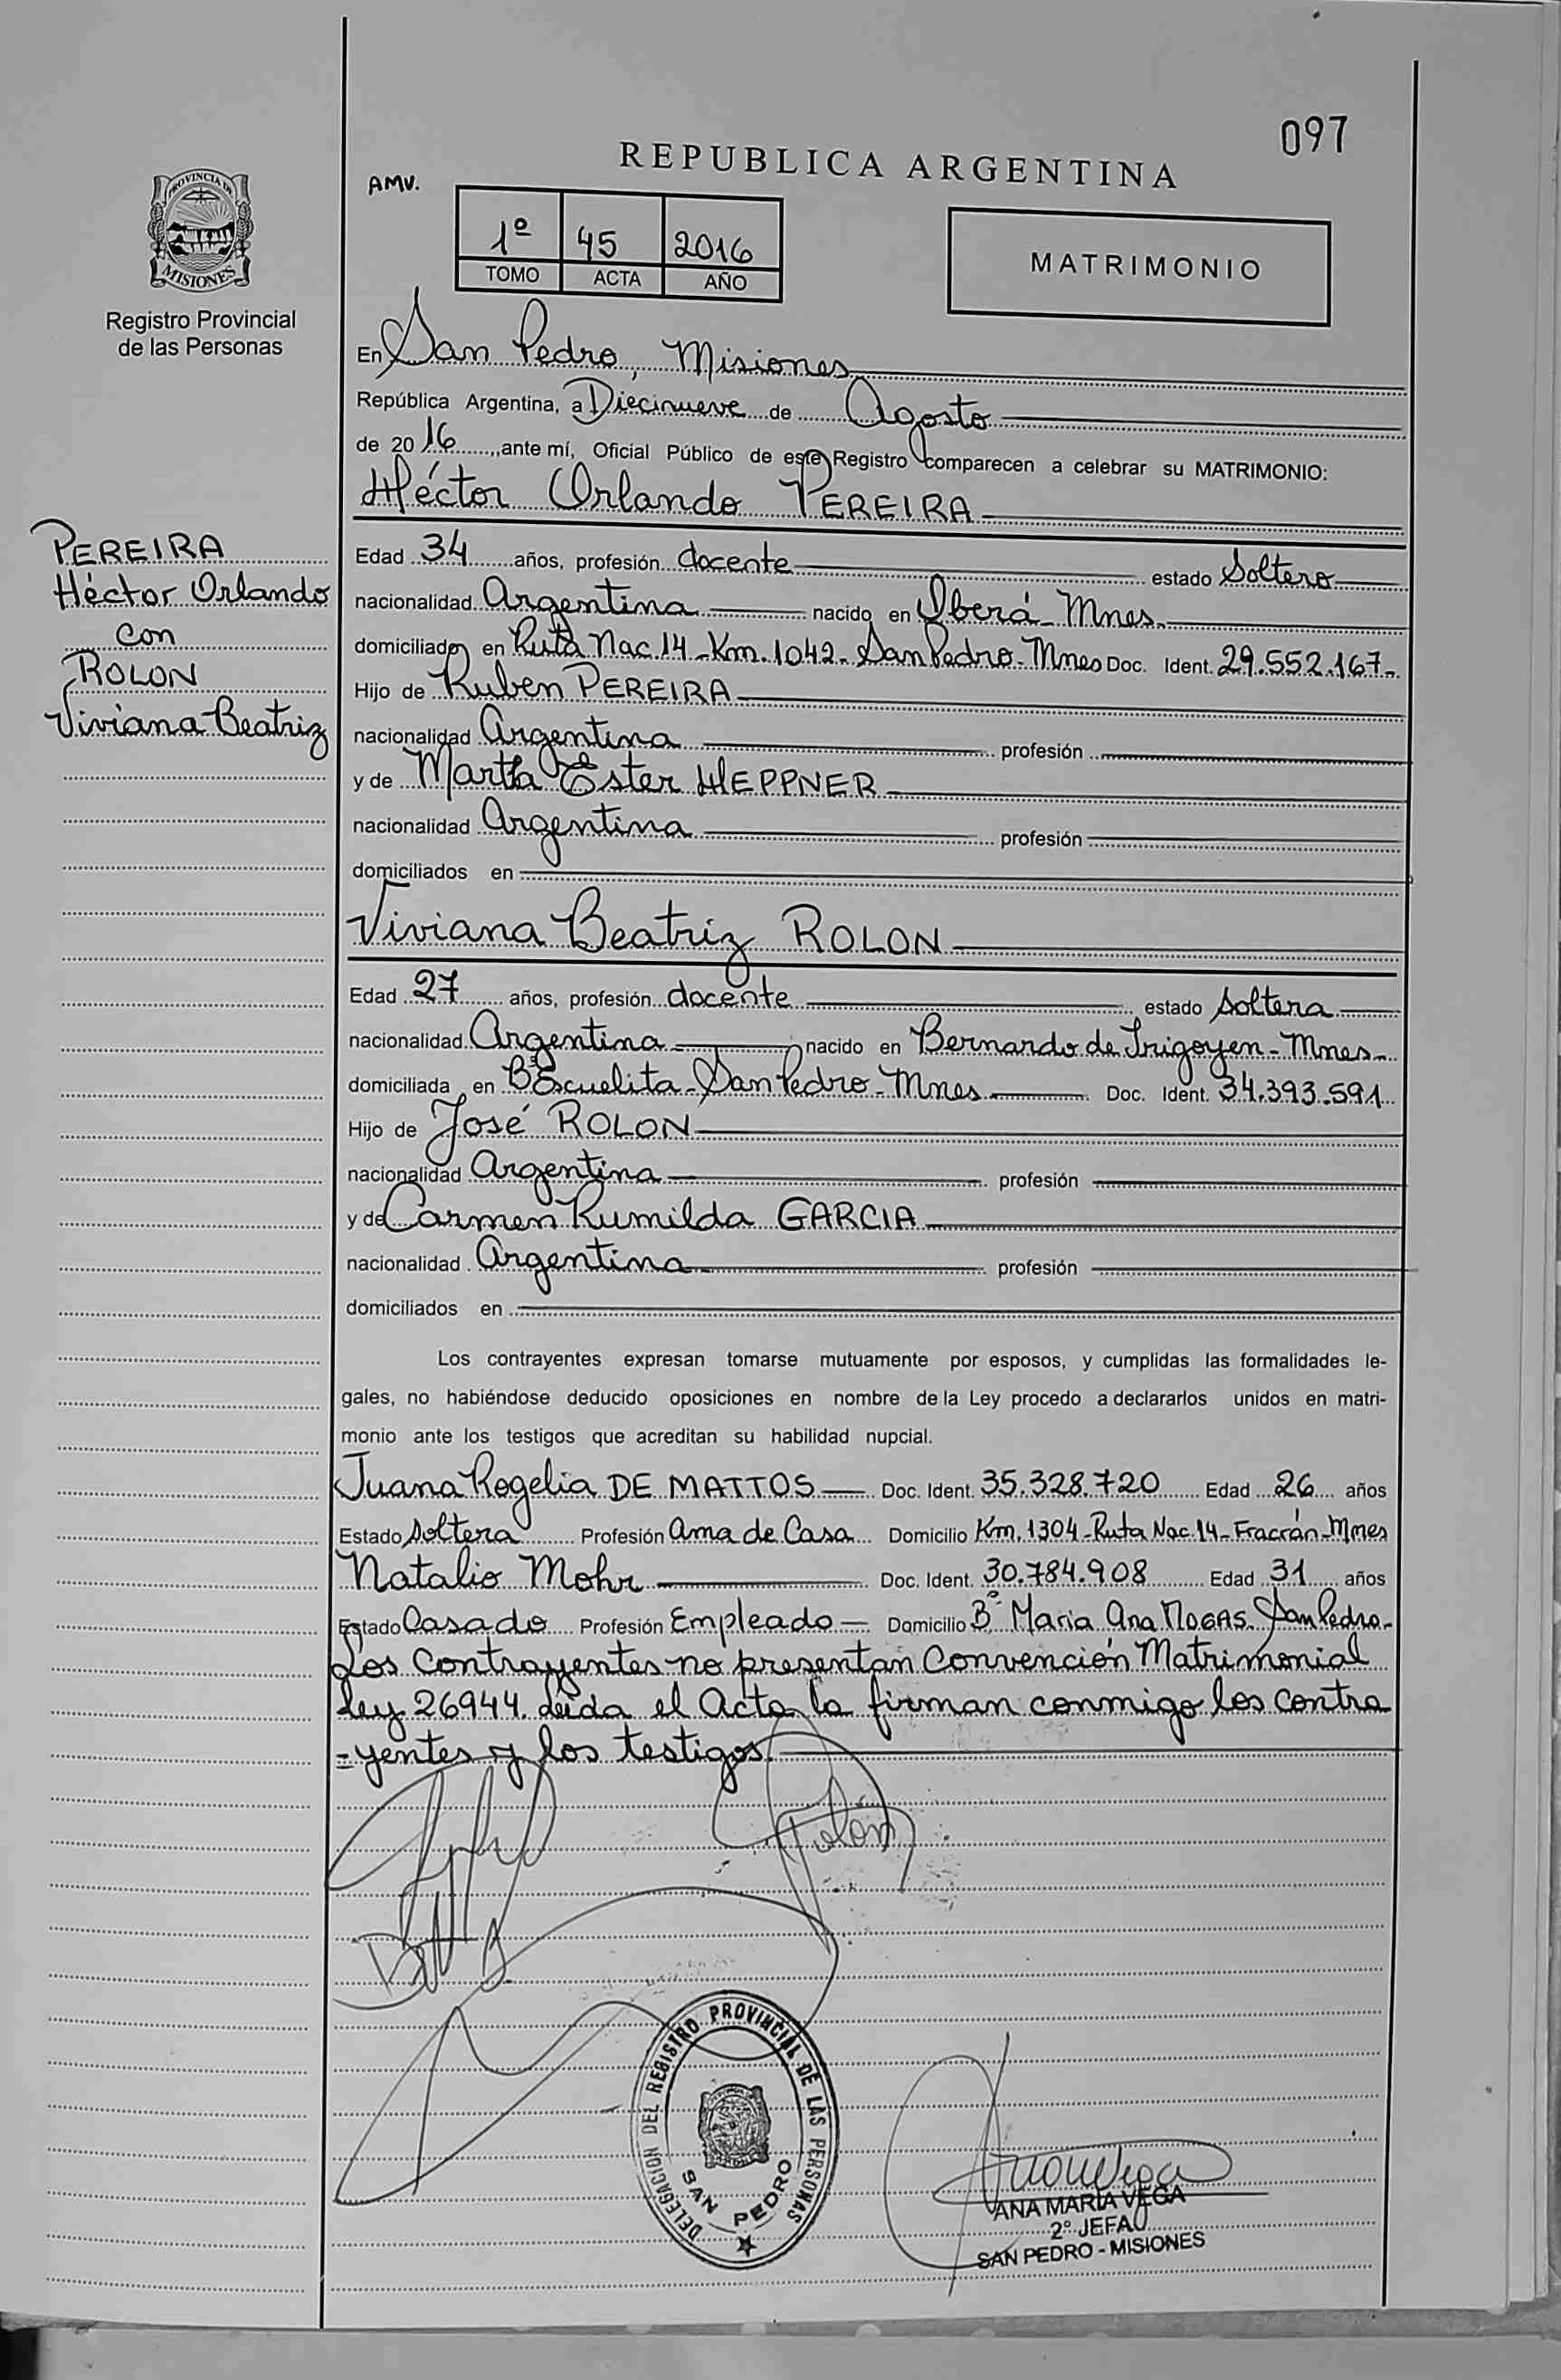 097
REPUBLICA ARGENTINA
AMV.
1º 45 2016
TOMO ACTA AÑO
MATRIMONIO
PROVINCIA DE
MISIONES
Registro Provincial
de las Personas
En San Pedro, Misiones
República Argentina, a Diecinueve de Agosto
de 2016, ante mí, Oficial Público de este Registro comparecen a celebrar su MATRIMONIO:
Héctor Orlando PEREIRA
PEREIRA
Héctor Orlando
con
ROLON
Viviana Beatriz
Edad 34 años, profesión docente estado Soltero
nacionalidad Argentina nacido en Oberá - Mnes.
domiciliado en Ruta Nac. 14 - Km. 1042 - San Pedro - Mnes Doc. Ident. 29.552.167-
Hijo de Ruben PEREIRA
nacionalidad Argentina profesión
y de Martha Ester HEPPNER
nacionalidad Argentina profesión
domiciliados en
Viviana Beatriz ROLON
Edad 27 años, profesión docente estado Soltera
nacionalidad Argentina nacido en Bernardo de Irigoyen - Mnes-
domiciliada en Bº Escuelita - San Pedro - Mnes Doc. Ident. 34.393.591
Hijo de José ROLON
nacionalidad Argentina profesión
y de Carmen Rumilda GARCIA
nacionalidad Argentina profesión
domiciliados en
Los contrayentes expresan tomarse mutuamente por esposos, y cumplidas las formalidades le-
gales, no habiéndose deducido oposiciones en nombre de la Ley procedo a declararlos unidos en matri-
monio ante los testigos que acreditan su habilidad nupcial.
Juana Rogelia DE MATTOS Doc. Ident. 35.328.720 Edad 26 años
Estado Soltera Profesión Ama de Casa Domicilio Km. 1304 - Ruta Nac. 14 - Fracrán - Mnes
Natalio Mohr Doc. Ident. 30.784.908 Edad 31 años
Estado Casado Profesión Empleado Domicilio Bº Maria Ana MOGAS. San Pedro.
Los Contrayentes no presentan Convención Matrimonial
Ley 26944. Leída el Acta, la firman conmigo los contra
-yentes y los testigos.
Rolón
DELEGACION DEL REGISTRO PROVINCIAL DE LAS PERSONAS
SAN PEDRO
ANA MARIA VEGA
2º JEFA
SAN PEDRO - MISIONES